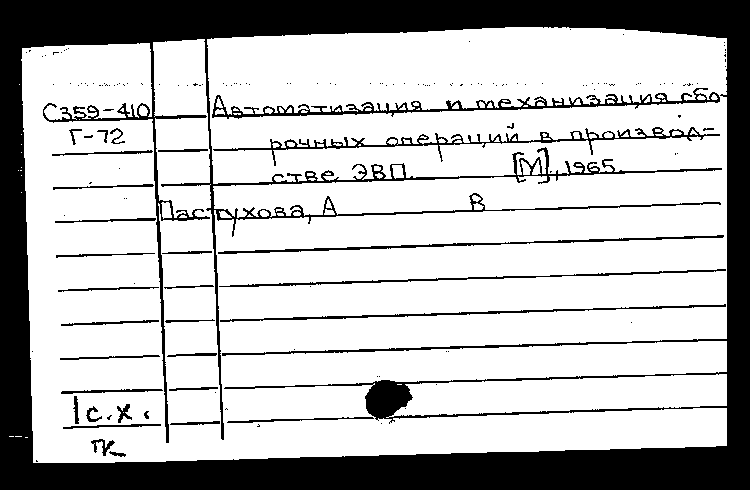 С359-410 Автоматизация и механизация сбо-
Г-72 рочных операций в производ=
стве ЭВП. [М], 1965.
Пастухова, А В
1 с.х.
ПК